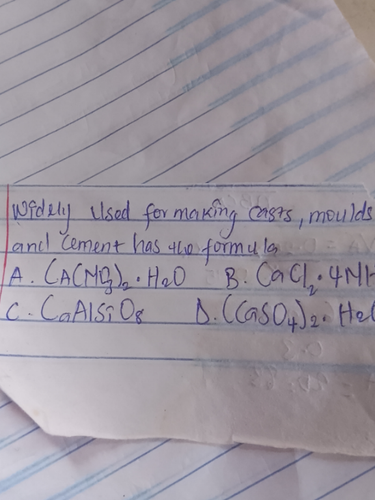 Widely Used for making casts, moulds
and cement has the formula
A. CA(NO3)2·H2O B. CaCl2·4NH
C. CaAlSiO8 D. (CaSO4)2·H2O